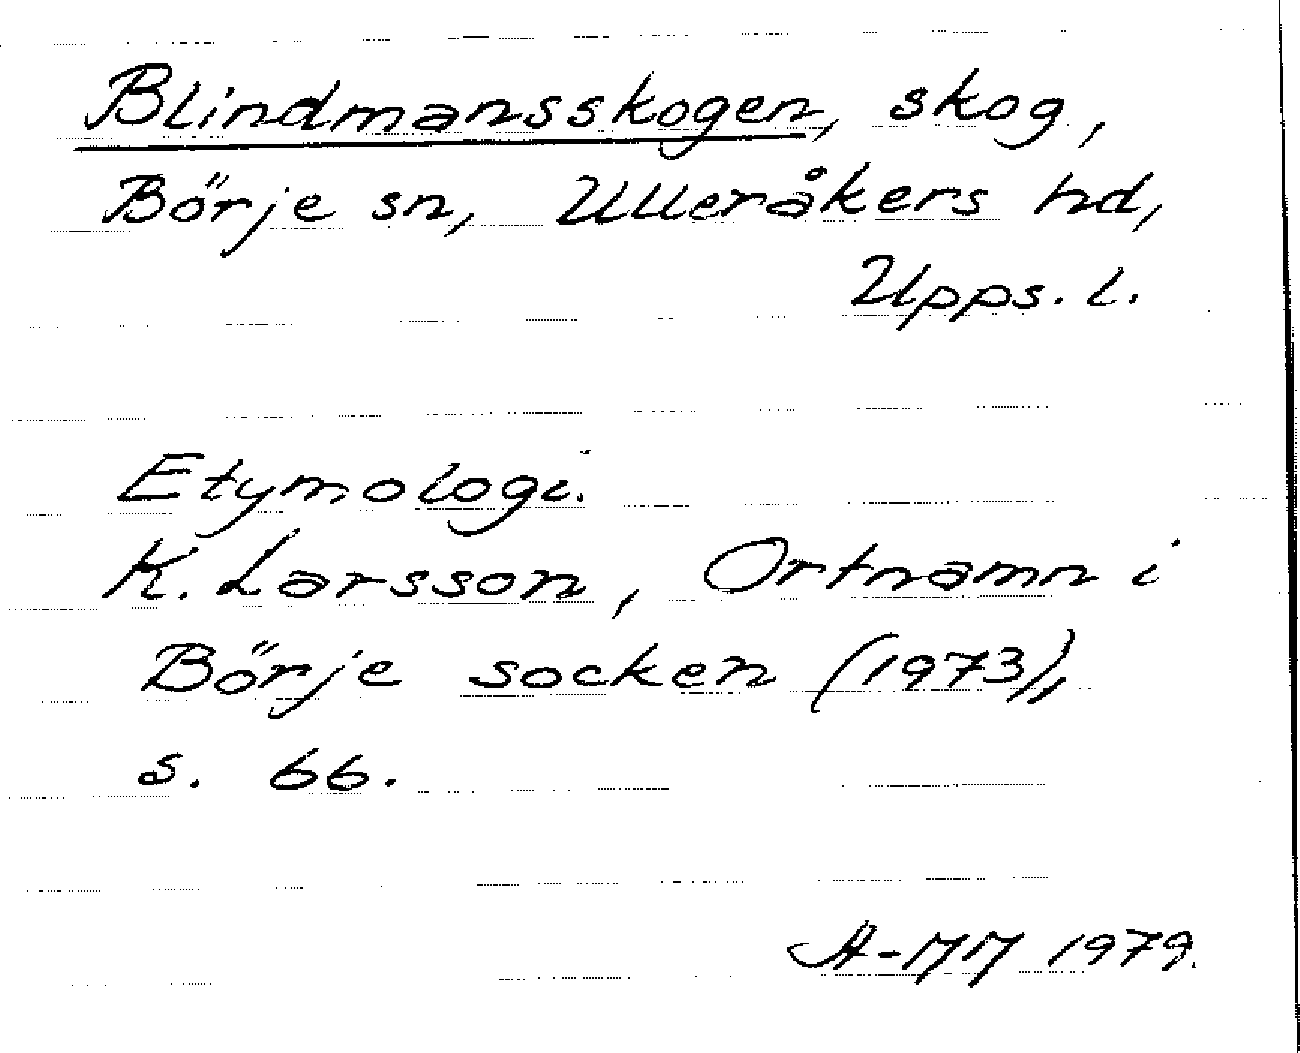 Blindmansskogen, skog,
Börje sn, Ulleråkers hd,
Upps. l.
Etymologi.
K. Larsson, Ortnamn i
Börje socken (1973),
s. 66.
A-MM 1979.